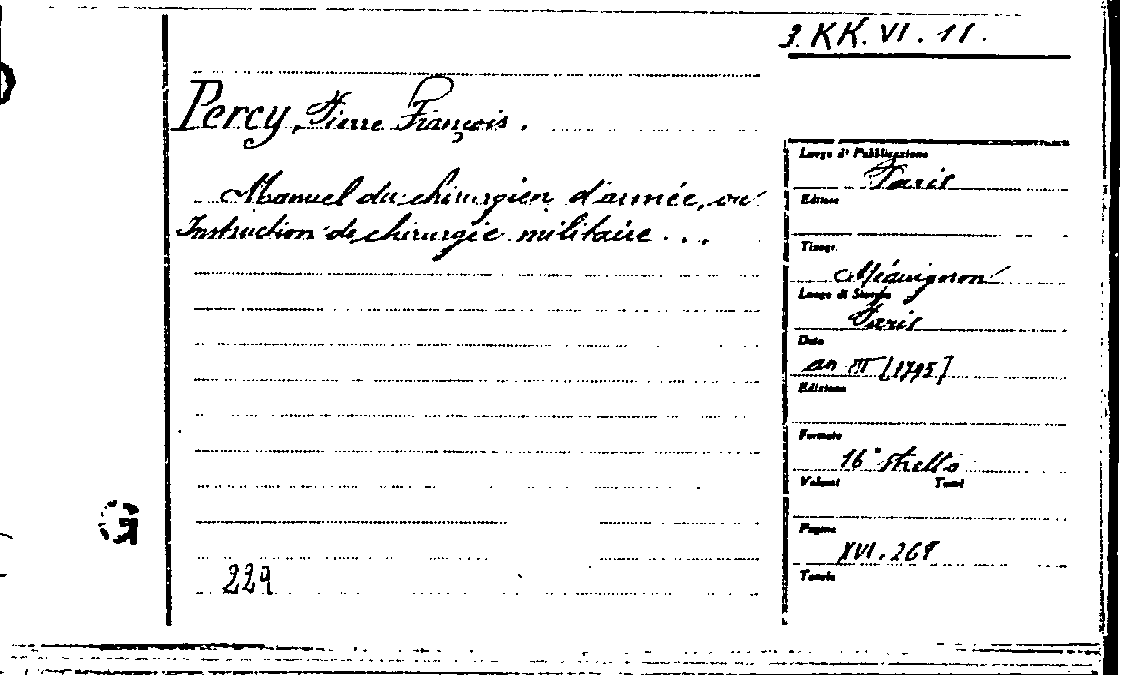 3. KK. VI. 11.
Percy, Pierre François.
Manuel du chirurgien d'armée, ou
Instruction de chirurgie militaire...
Luogo d' Pubblicazione
Paris
Editore
Tipogr.
Méquignon
Luogo di Stampa
Paris
Data
an III [1795]
Edizione
Formato
16° stretto
Volumi Tomi
Pagine
XVI. 267
Tavole
G
229